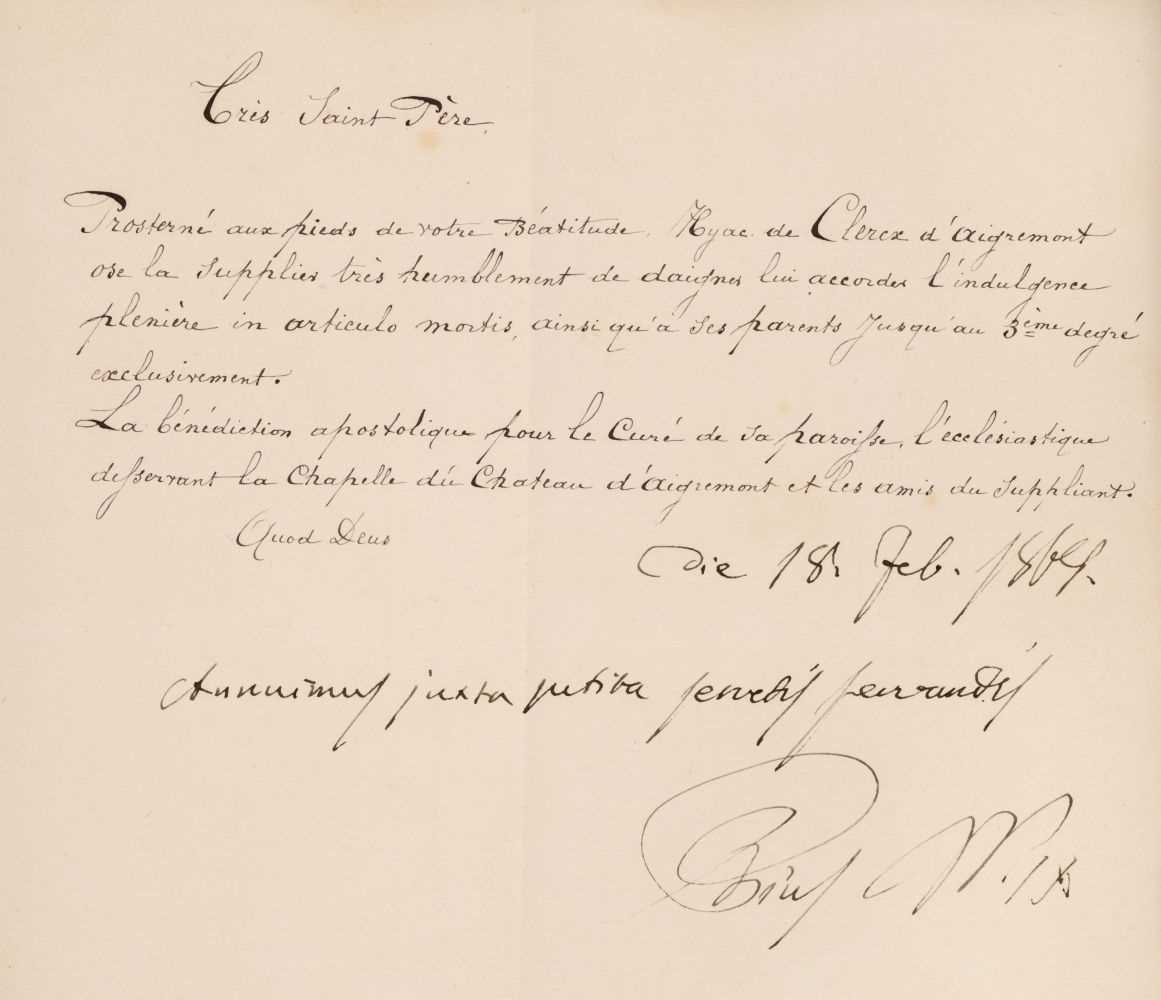 Très Saint Père,
Prosterné aux pieds de votre Béatitude, Hyac. de Clercx d'Aigremont
ose la supplier très humblement de daigner lui accorder l'indulgence
plenière in articulo mortis, ainsi qu'à ses parents jusqu'au 3ème degré
exclusivement.
La bénédiction apostolique pour le Curé de sa paroisse, l'ecclésiastique
desservant la Chapelle du Chateau d'Aigremont et les amis du suppliant.
Quod Deus
Die 18. Feb.
Annuimus juxta petita servatis servandis
Pius PP. IX